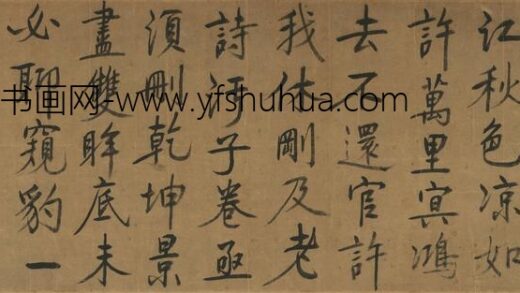 江秋色凉如
許萬里冥鴻
去不還官許
我休剛及老
詩子卷亟
須刪乾坤景
盡雙眸底未
必聊窺豹一
书画网-www.yfshuhua.com